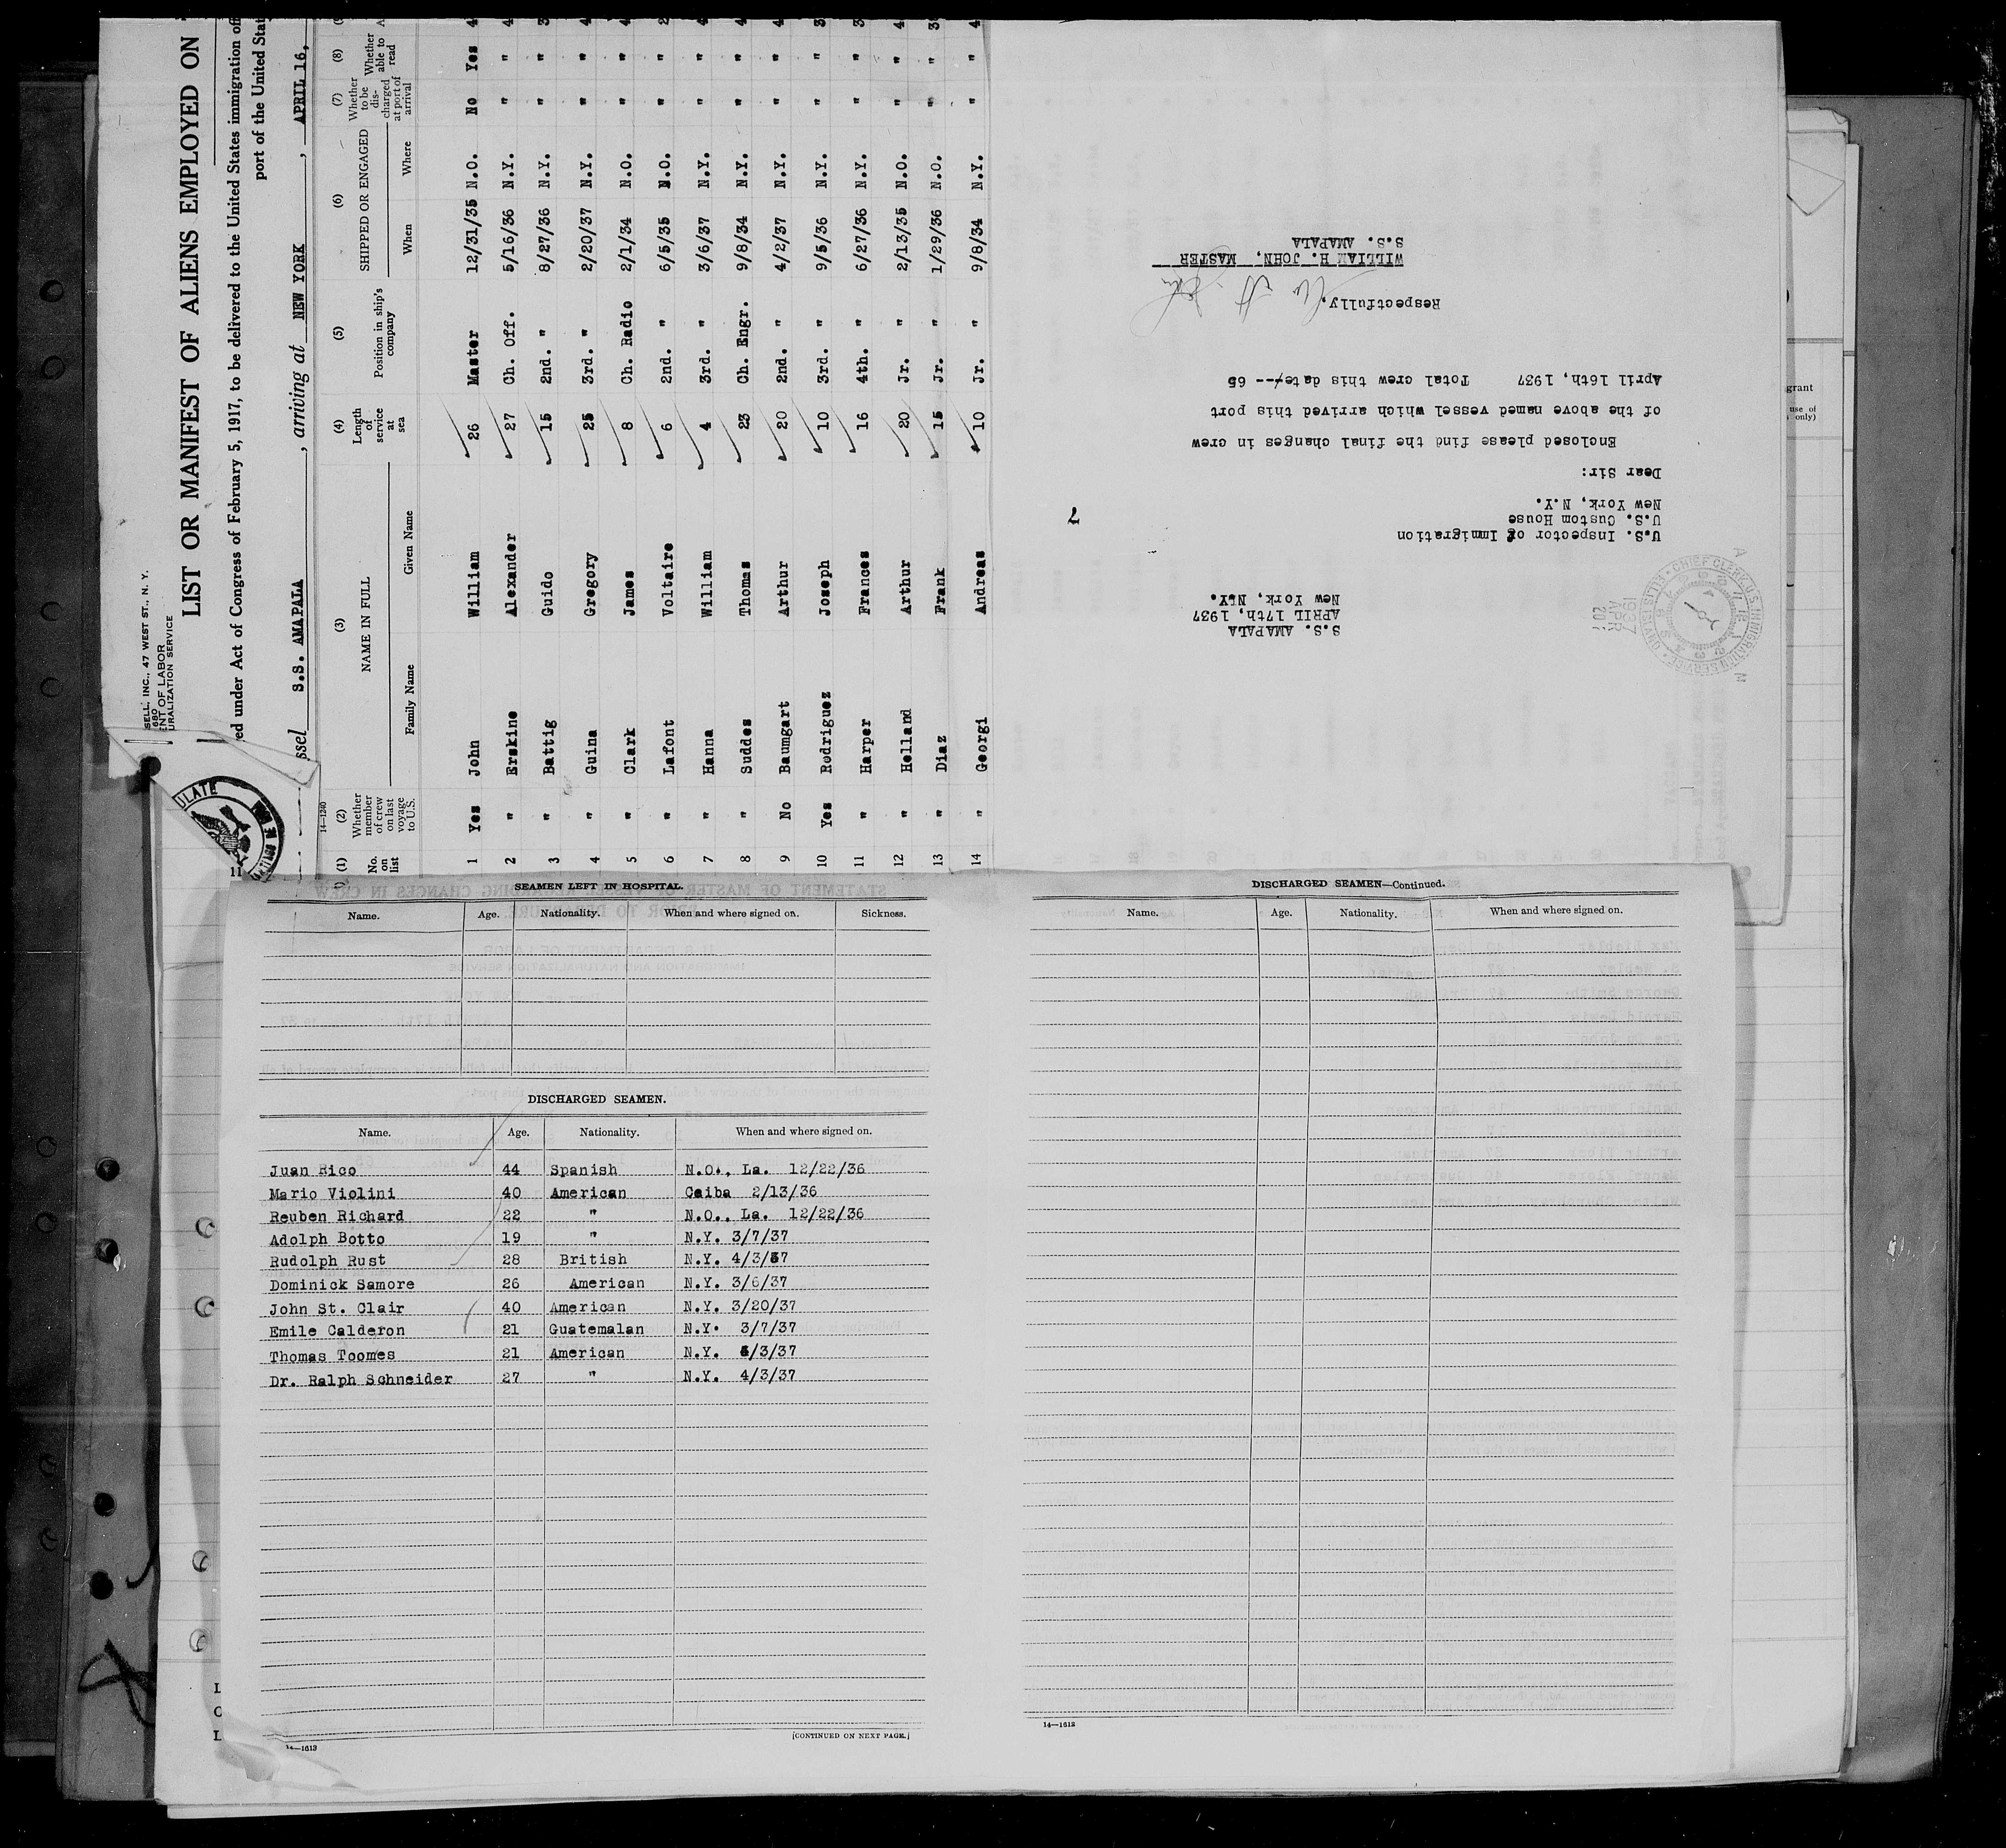 SELL, INC., 47 WEST ST., N. Y.
680
NT OF LABOR
URALIZATION SERVICE
LIST OR MANIFEST OF ALIENS EMPLOYED ON
ed under Act of Congress of February 5, 1917, to be delivered to the United States immigration off
port of the United Stat
ssel S.S. AMAPALA, arriving at NEW YORK, APRIL 16,
14-1240
(1) No. on list
(2) Whether member of crew on last voyage to U.S.
(3) NAME IN FULL
Family Name Given Name
(4) Length of service at sea
(5) Position in ship's company
(6) SHIPPED OR ENGAGED
When Where
(7) Whether to be discharged at port of arrival
(8) Whether able to read
1 Yes John William 26 Master 12/31/35 N.O. No Yes 4
2 " Erskine Alexander 27 Ch. Off. 5/16/36 N.Y. " " 4
3 " Battig Guido 15 2nd. " 8/27/36 N.Y. " " 3
4 " Guina Gregory 25 3rd. " 2/20/37 N.Y. " " 4
5 " Clark James 8 Ch. Radio 2/1/34 N.O. " " 4
6 " Lafont Voltaire 6 2nd. " 6/5/35 N.O. " " 2
7 " Hanna William 4 3rd. " 3/6/37 N.Y. " " 4
8 " Suddes Thomas 23 Ch. Engr. 9/8/34 N.Y. " " 4
9 No Baumgart Arthur 20 2nd. " 4/2/37 N.Y. " " 4
10 Yes Rodriguez Joseph 10 3rd. " 9/5/36 N.Y. " " 3
11 " Harper Frances 16 4th. " 6/27/36 N.Y. " " 3
12 " Helland Arthur 20 Jr. " 2/13/35 N.O. " " 4
13 " Diaz Frank 15 Jr. " 1/29/36 N.O. " " 3
14 " Georgi Andreas 10 Jr. " 9/8/34 N.Y. " " 4
S.S. AMAPALA
APRIL 17th, 1937
New York, N.Y.
U.S. Inspector of Immigration
U.S. Custom House
New York, N.Y.
Dear Sir:
Enclosed please find the final changes in crew
of the above named vessel which arrived this port
April 16th, 1937 Total crew this date--- 65
Respectfully,
Wm H. John
WILLIAM H. JOHN, MASTER
S.S. AMAPALA
CHIEF CLERK U.S. IMMIGRATION SERVICE ELLIS ISLAND
1937 APR 20
SEAMEN LEFT IN HOSPITAL.
Name. Age. Nationality. When and where signed on. Sickness.
DISCHARGED SEAMEN.
Name. Age. Nationality. When and where signed on.
Juan Rico 44 Spanish N.O., La. 12/22/36
Mario Violini 40 American Ceiba 2/13/36
Reuben Richard 22 " N.O., La. 12/22/36
Adolph Botto 19 " N.Y. 3/7/37
Rudolph Rust 28 British N.Y. 4/3/37
Dominick Samore 26 American N.Y. 3/6/37
John St. Clair 40 American N.Y. 3/20/37
Emile Calderon 21 Guatemalan N.Y. 3/7/37
Thomas Toomes 21 American N.Y. /3/37
Dr. Ralph Schneider 27 " N.Y. 4/3/37
14—1613
[CONTINUED ON NEXT PAGE.]
DISCHARGED SEAMEN—Continued.
Name. Age. Nationality. When and where signed on.
14—1613
grant
use of
only)